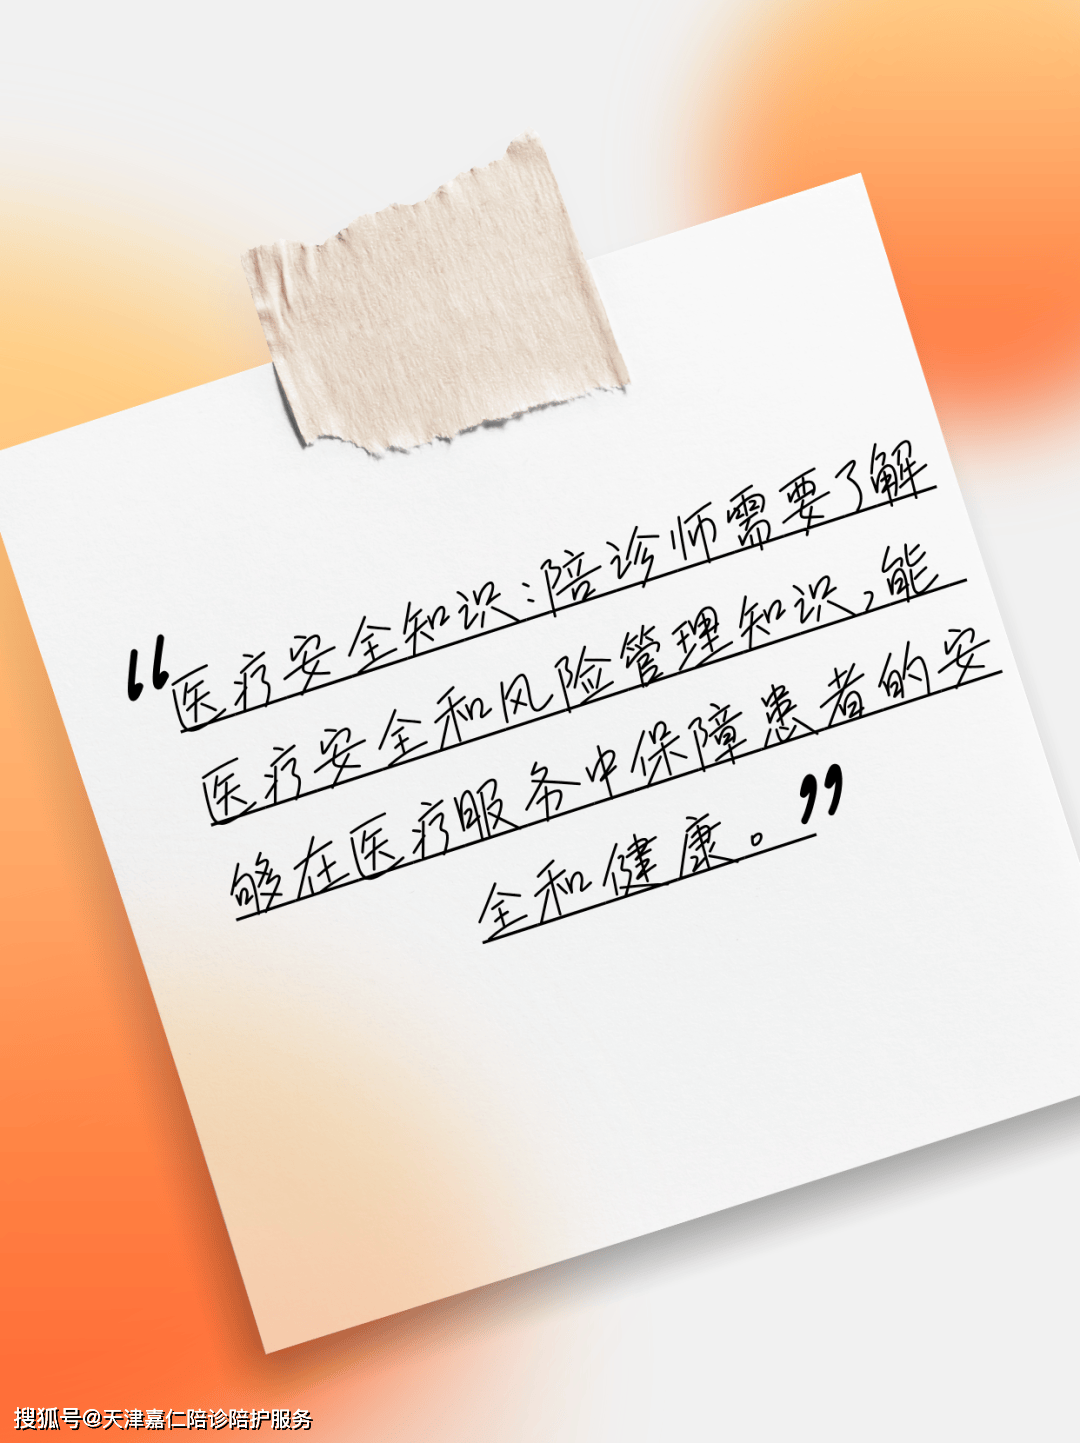 “医疗安全知识:陪诊师需要了解
医疗安全和风险管理知识,能
够在医疗服务中保障患者的安
全和健康。”
搜狐号@天津嘉仁陪诊陪护服务